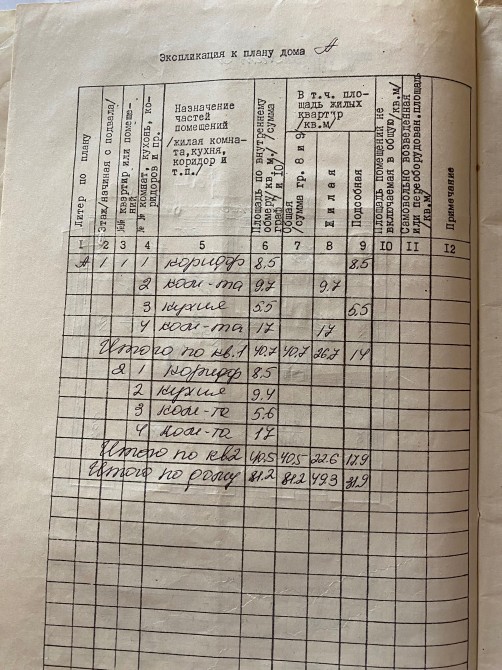 Экспликация к плану дома А
Литер по плану
Этаж/начиная с подвала/
№№ квартир или помещений
№№ комнат, кухонь, коридоров и пр.
Назначение
частей
помещений
/жилая комна-
та,кухня,
коридор и
т.п./
Площадь по внутреннему
обмеру/кв.м,/сумма
граф и 10/
Общая
/сумма гр. 8 и 9
В т.ч. пло-
щадь жилых
квартир
/кв.м/
Жилая
Подсобная
Площадь помещений не
включаемая в общую/кв.м/
Самовольно возведенная
или переоборудован.площадь
/кв.м/
Примечание
1 2 3 4 5 6 7 8 9 10 11 12
А 1 1 1 коридор 8.5 8.5
2 ком-та 9.7 9.7
3 кухня 5.5 5.5
4 ком-та 17 17
Итого по кв.1 40.7 40.7 26.7 14
2 1 коридор 8.5
2 кухня 9.4
3 ком-та 5.6
4 ком-та 17
Итого по кв2 40.5 40.5 22.6 17.9
Итого по дому 81.2 81.2 49.3 31.9